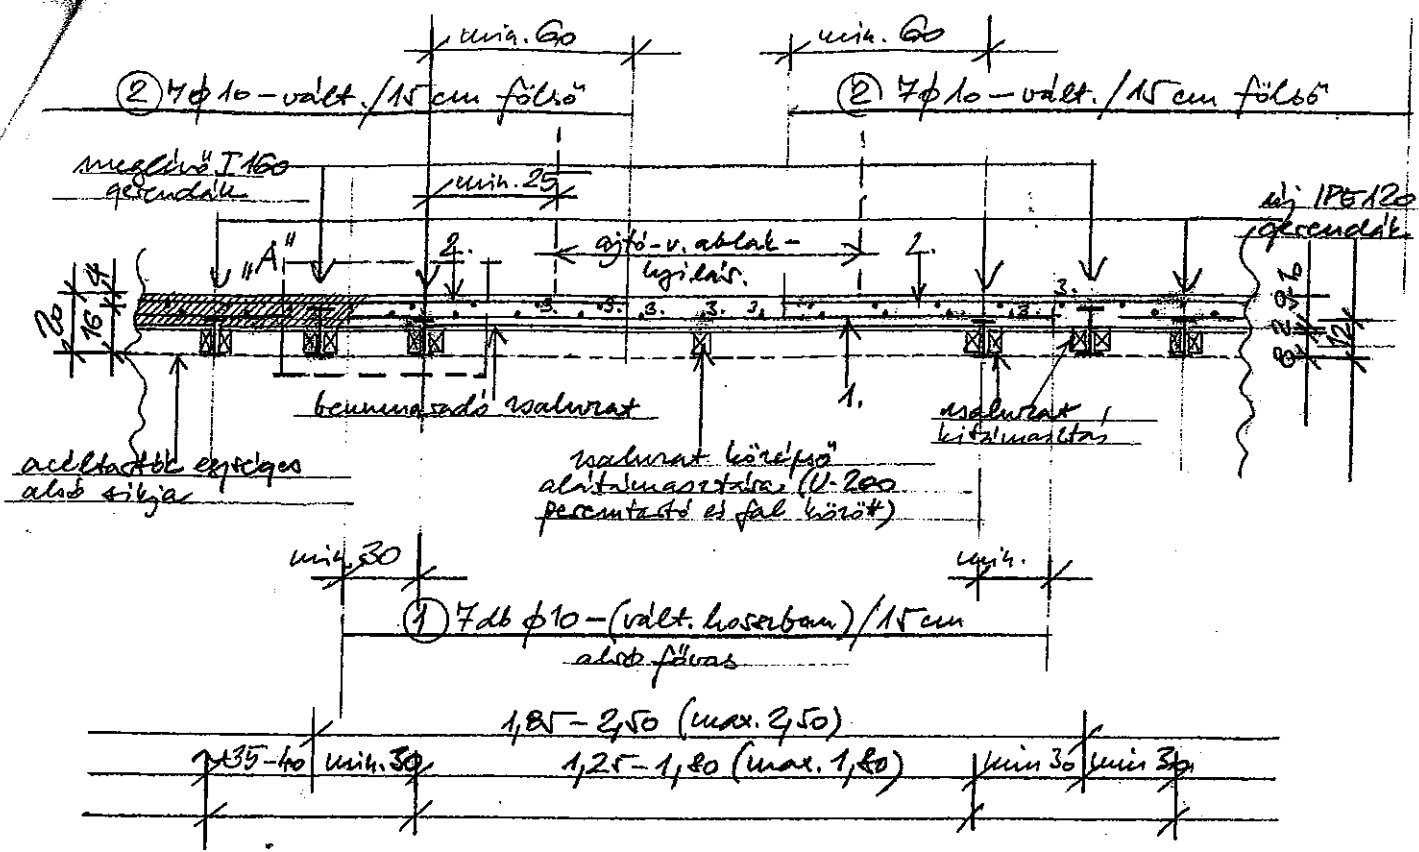 min. 60
min. 60
② 7ϕ10-vált./15 cm fölső
② 7ϕ10-vált./15 cm fölső
meglévő I 160
gerendák
min. 25
új IPE 120
gerendák
"A"
2.
ajtó-v. ablak-
nyílás.
2.
3.
3.
3.
3.
3.
3.
3.
4
20
16
2
8
12
bennmaradó zsaluzat
1.
zsaluzat
kitámasztás
acéltartók egységes
alsó síkja
zsaluzat középső
alátámasztása (U-200
peremtartó és fal között)
min. 30
min.
① 7 db ϕ10-(vált. hosszban)/15 cm
alsó fővas
1,85-2,50 (max. 2,50)
35-40
min. 30
1,25-1,80 (max. 1,80)
min 30
min 30